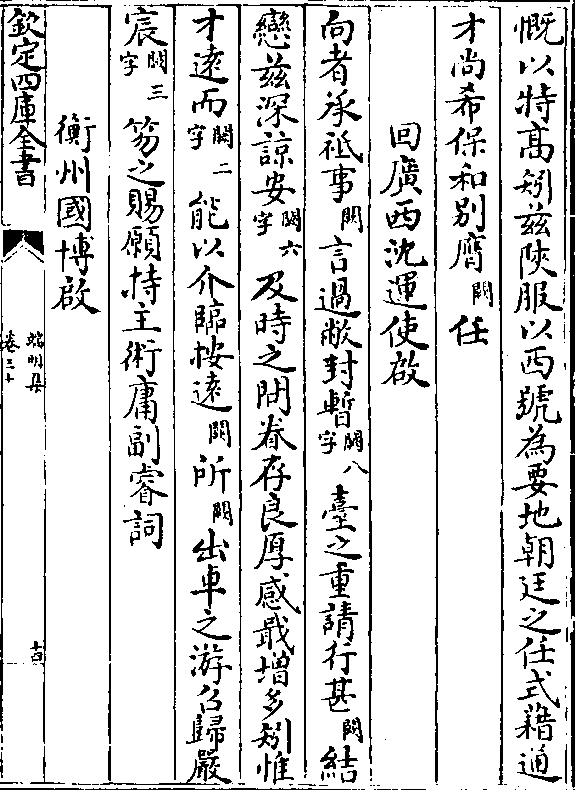 慨以特髙矧兹陜服以西號為要地朝廷之任式藉通
才尚希保和别膺闕任
回廣西沈運使啟
向者承祗事闕言過敝封暫闕八字臺之重請行甚闕結
戀兹深諒安闕六字及時之問眷存良厚感戢増多矧惟
才逺而闕二字能以介臨按逺闕所闕出車之游召歸嚴
宸闕三字笏之賜願持主術庸副睿詞
衡州國博啟
欽定四庫全書
端明集
卷三十
十四